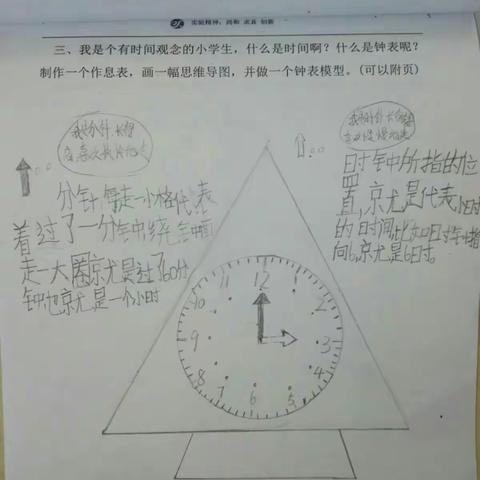 实验精神：尚和 求真 创新
三、我是个有时间观念的小学生，什么是时间啊？什么是钟表呢？
制作一个作息表，画一幅思维导图，并做一个钟表模型。(可以附页)
分针每走一小格代表
着过了一分钟绕钟面
走一大圈就是过了60分
钟也就是一个小时
时钟所指的位
置，就是代表小时
的时间比如时针指
向6，就是6时。
12
1
2
3
4
5
6
7
8
9
10
11